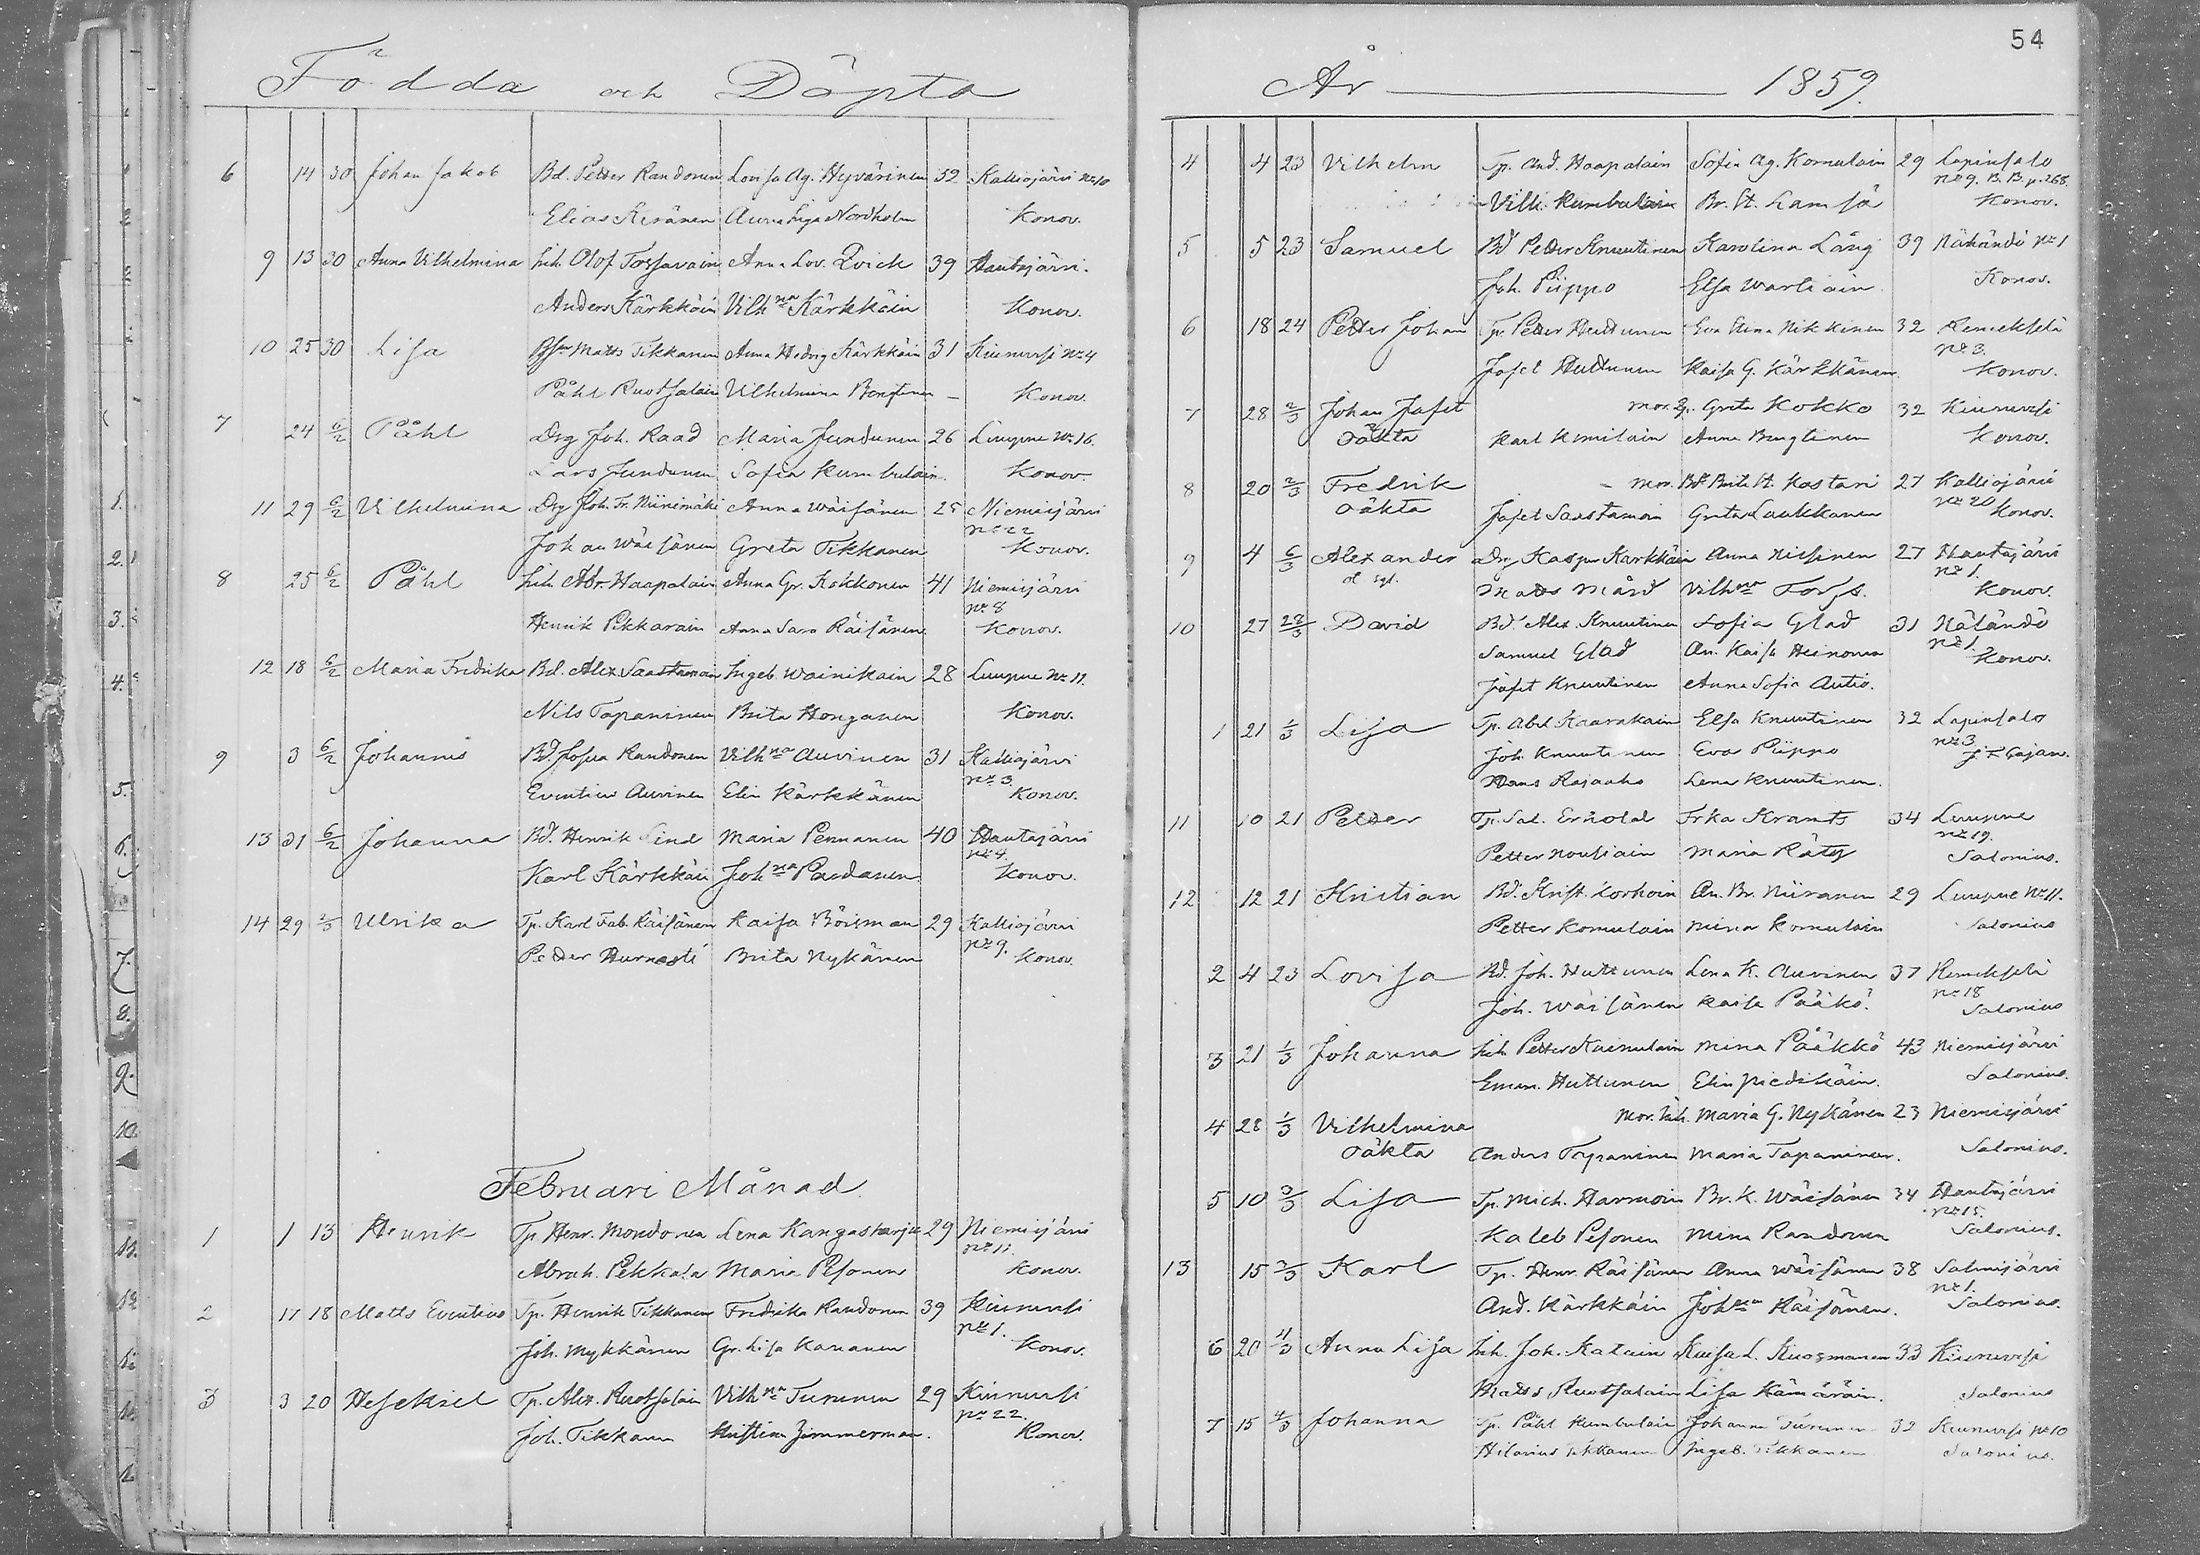 Födda och Döpta
6 14 30 Johan Jakob Bd. Petter Randonen Lovisa Ag. Hyvärinen 32 Kalliojärvi No 10
Elias Anna Lisa Nordholm Konov.
9 13 30 Anna Vilhelmina Inh. Olof Tossavain Anna Lov. Qvick 39 Hautajärvi.
Anders Kärkkäin Vilhna Kärkkäin Konov.
10 25 30 Lisa Matts Tikkanen Anna Hedvig Kärkkäin 31 Kiuruvesi No 4
Påhl Ruotsalain Vilhelmina Konov.
7 24 6/2 Påhl Drg Joh. Raad Maria Jundunen 26 Luupue No 16.
Lars Jundunen Sofia Kumbulain Konov.
11 29 6/2 Vilhelmina Drg Joh. Fr. Niinimäki Anna Wäisänen 25 Niemisjärvi
No 22
Johan Wäisänen Greta Tikkanen Konov.
8 25 6/2 Påhl Inh. Abr. Haapalain Anna Gr. Kokkonen 41 Niemisjärvi
No 8
Henrik Pikkarain Anna Sara Räisänen Konov.
12 18 6/2 Maria Fredrika Bd. Alex. Saastamoin Ingeb. Wainikain 28 Luupue No 11.
Nils Tapaninen Brita Honganen Konov.
9 3 6/2 Johannes Bd. Josua Randonen Vilhna Auvinen 31 Kalliojärvi
No 3
Eventius Auvinen Elin Kärkkänen Konov.
13 31 6/2 Johanna Bd. Henrik Lind Maria Pennanen 40 Hautajärvi
No 4
Karl Kärkkäin Johna Konov.
14 29 2/3 Ulrika Tp. Karl Fab. Räisänen Kaisa Böisman 29 Kalliojärvi
No 9.
Petter Hurnasti Brita Nykänen Konov.
Februari Månad
1 1 13 Henrik Tp Henr. Mondonen Lena Kangasharju 29 Niemisjärvi
No 11.
Abrah. Pekkala Maria Pesonen Konov.
2 17 18 Matts Eventius Tp. Henrik Tikkanen Fredrika Randonen 39 Kiuruvesi
No 1.
Joh. Mykkänen Gr. Lisa Kananen Konov.
3 3 20 Hesekiel Tp. Alex. Ruotsalain Vilhna Turunen 29 Kiuruvesi
No 22
Joh. Tikkanen Kristina Zimmerman. Konov.
54
År 1859.
4 4 23 Vilhelm Tp. And. Haapalain Sofia Ag. Komulain 29 Lapinsalo
No 9. B. B. p. 268.
Vilh. Kumbulain Br. St. Lamsä Konov.
5 5 23 Samuel Bd Petter Knuutinen Karolina Lång 39 Näländö No 1
Joh. Piippo Elsa Wartiain Konov.
6 18 24 Petter Johan Tp. Petter Huttunen Eva Stina Nikkinen 32 Remekselä
No 3.
Josef Huttunen Kaisa G. Kärkkänen Konov.
7 28 2/3 Johan Jafet mor. Greta Kokko 32 Kiuruvesi
oäkta Karl Komulain Anna Bengtinen Konov.
8 20 2/3 Fredrik mor. Bd Brita St. Kastari 27 Kalliojärvi
No 20
oäkta Jafet Saastamoin Greta Laukkanen Konov.
9 4 6/3 Alexander Drg Kaspur Karkkäin Anna Nissinen 27 Hautajärvi
No 1.
Matts Mård Vilhna Konov.
10 27 28/3 David Bd. Alex. Knuutinen Sofia Glad 31 Näländö
No 1.
Samuel Glad An. Kaisa Heinonen Konov.
Jafet Knuutinen Anna Sofia Autio.
1 21 1/3 Lisa Tp. Abel Kaarakain Elsa Knuutinen 32 Lapinsalo
No 3
Joh. Knuutinen Eva Piippo J. F. Cajan.
Hans Rajaaho Lena Knuutinen.
11 10 21 Petter Tp. Sal. Erhold Frka Krants 34 Luupue
No 19.
Petter Nousiain Maria Räty Salonius.
12 12 21 Kristian Bd. Krist. Korhoin An. Br. Niiranen 29 Luupue No 11.
Petter Komulain Mina Komulain Salonius
2 4 23 Lovisa Bd. Joh. Huttunen Lena K. Auvinen 37 Remekselä
No 18
Joh. Wäisänen Kaisa Pääkö. Salonius
3 21 1/3 Johanna Inh Petter Kainulain Mina Pääkkö 43 Niemisjärvi
Eman. Huttunen Elin Piedikäin. Salonius.
4 28 1/3 Vilhelmina Mor. Inh. Maria G. Nykänen 23 Niemisjärvi
oäkta Anders Tapaninen Maria Tapaninen. Salonius.
5 10 3/3 Lisa Tp. Mich. Harmoin Br. K. Wäisänen 34 Hautajärvi
No 15.
Kaleb Pesonen Mina Randonen Salonius.
13 15 3/3 Karl Tp. Henr. Räisänen Anna Wäisänen 38 Salmisjärvi
No 1.
And. Kärkkäin Johna Räisänen. Salonius.
6 20 4/3 Anna Lisa Inh. Joh. Katain Kaisa L. Kuosmanen 33 Kiuruvesi
Matts Ruotsalain Lisa Kämäräin. Salonius
7 15 4/3 Johanna Tp. Påhl Kumbulain Johanna Turunen 32 Kiuruvesi No 10
Hilarius Tikkanen Ingeb. Tikkanen Salonius.